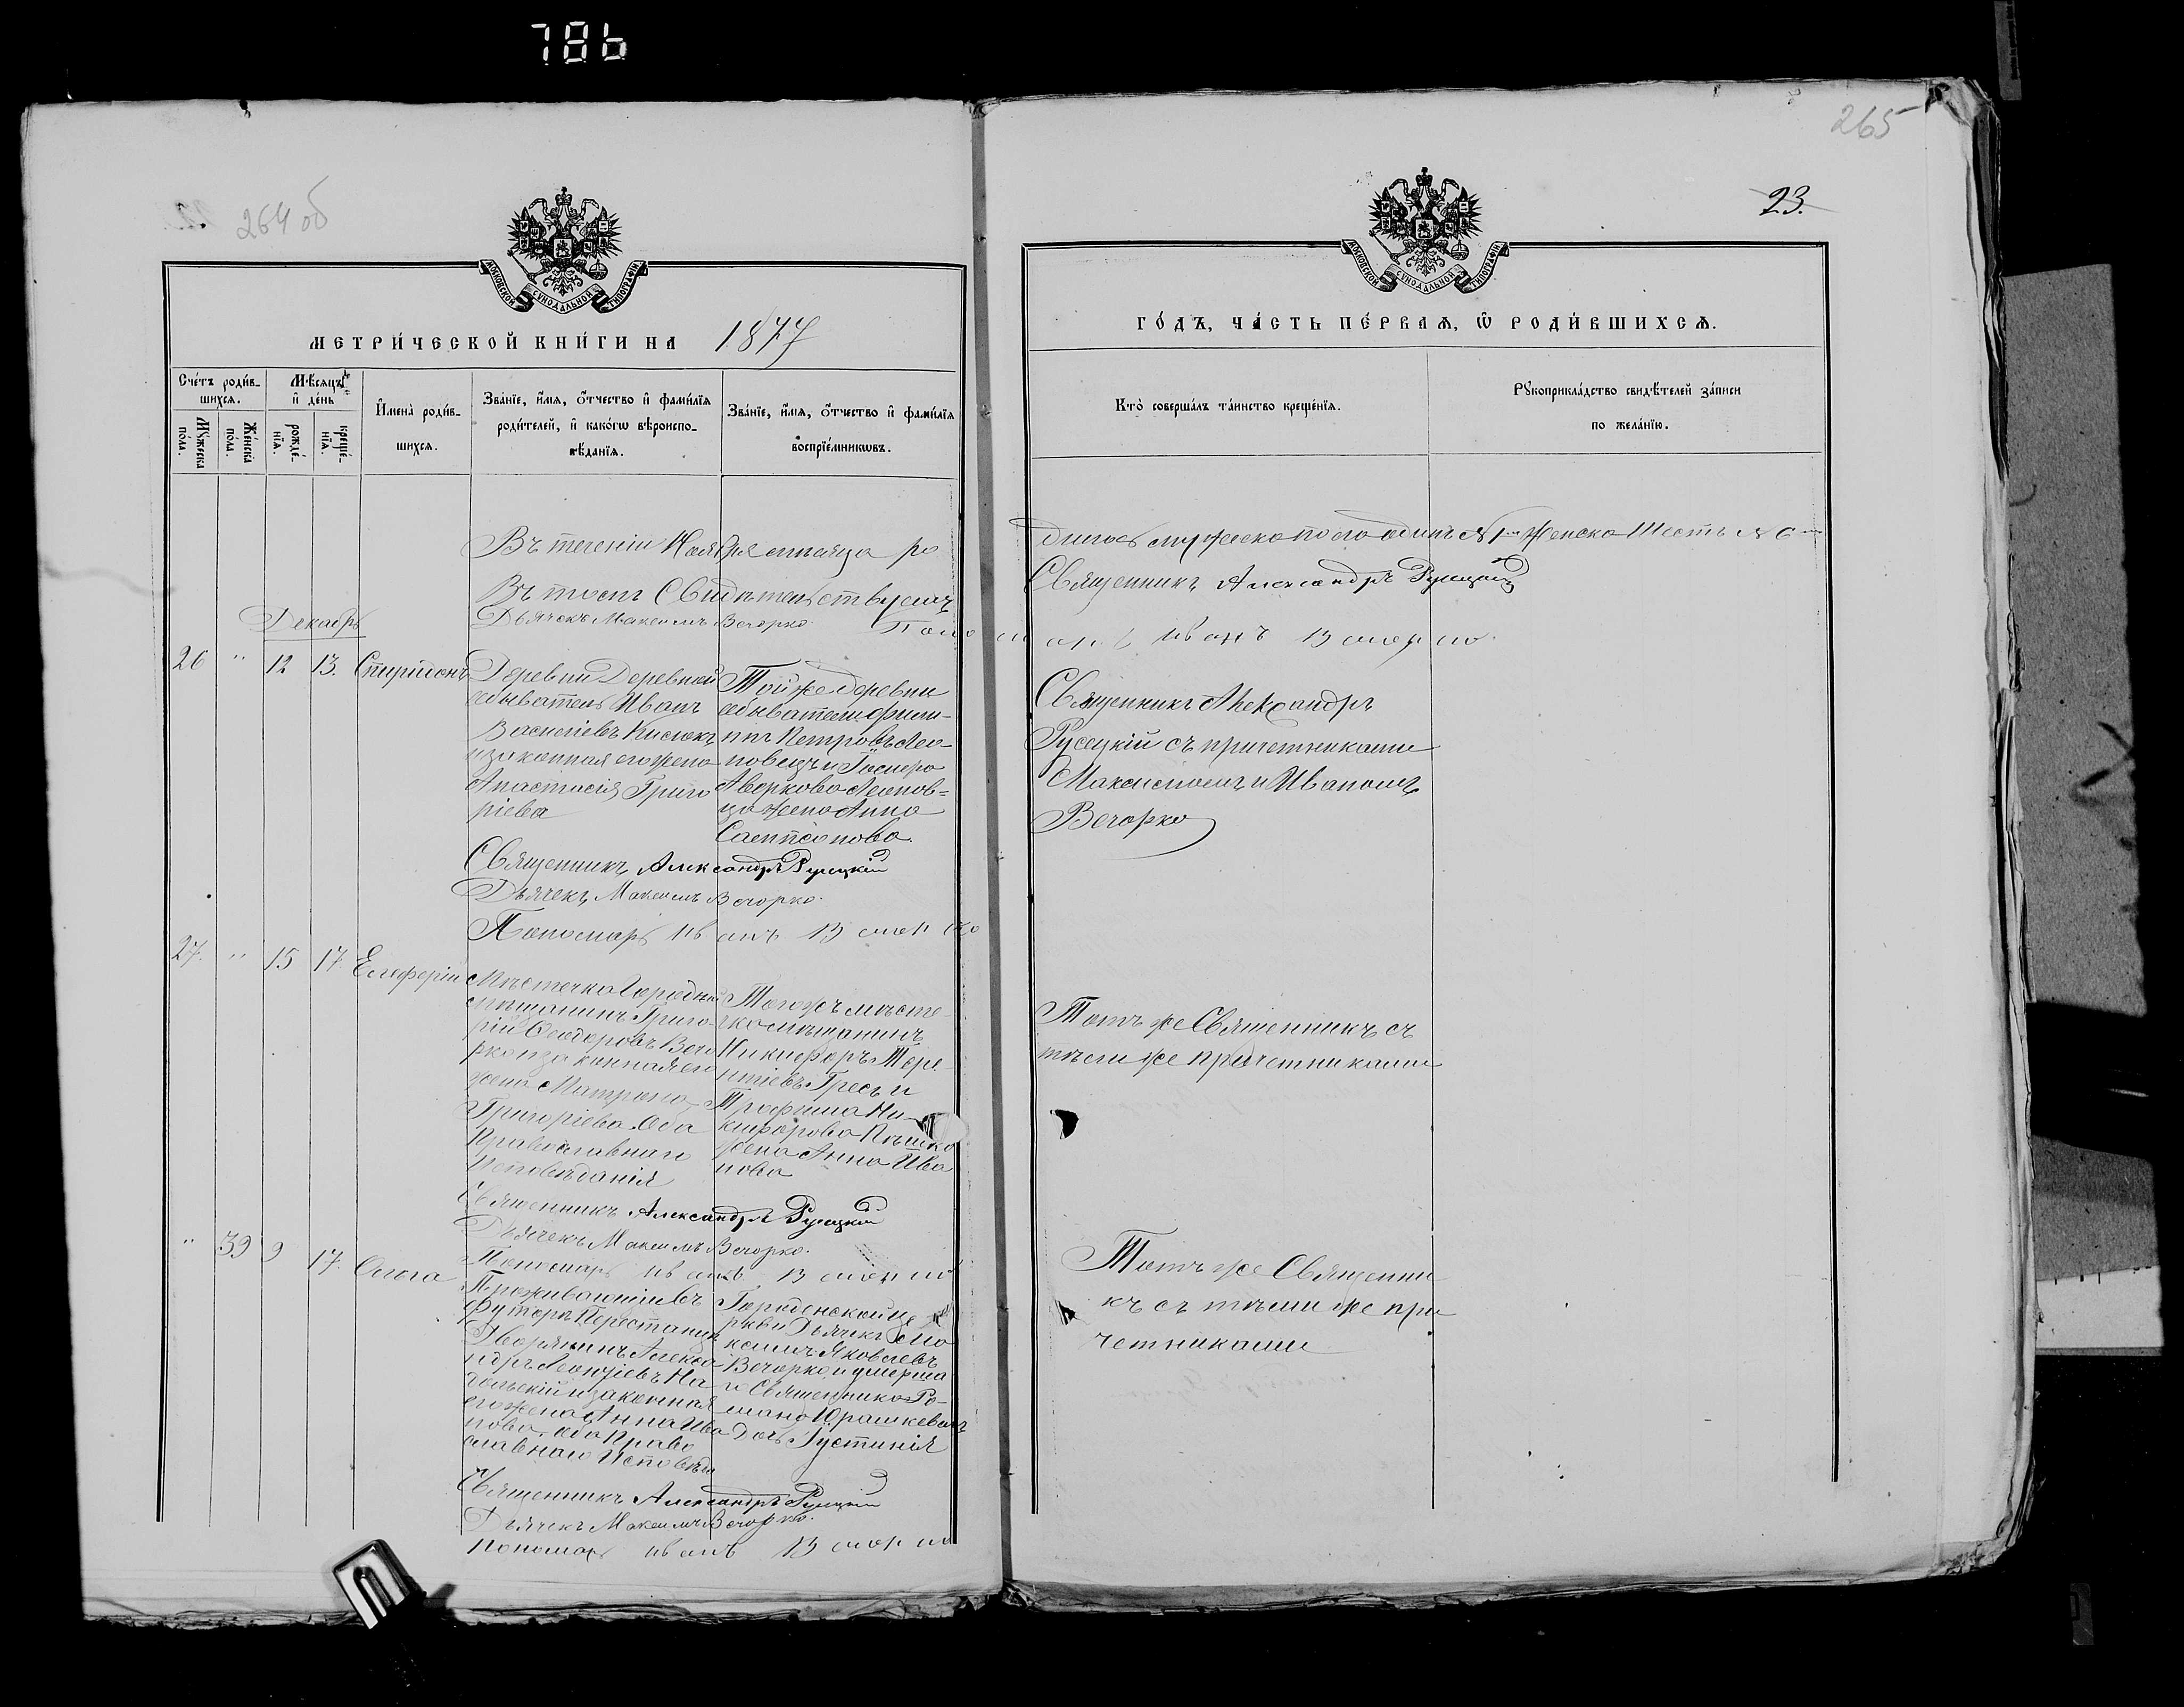 786
264 об
265
23.
МОСКОВСКОЙ СѴНОДАЛЬНОЙ ТИПОГРАФІИ
МОСКОВСКОЙ СѴНОДАЛЬНОЙ ТИПОГРАФІИ
МЕТРИ́ЧЕСКОЙ КНИ́ГИ НА 1877
ГО́ДЪ, ЧА́СТЬ ПЕ́РВАѦ, Ѿ РОДИ́ВШИХСѦ.
Сче́тъ роди́в-
шихсѧ.
Мꙋ́жеска по́ла.
Же́нска по́ла.
Мѣ́сѧцъ и҆ де́нь
рожде́-
нїѧ.
креще́-
нїѧ.
И҆мена̀ роди́в-
шихсѧ.
Зва́нїе, и҆́мѧ, о҆́тчество и҆ фами́лїѧ
роди́телей, и҆ како́гѡ вѣроиспо-
вѣ́данїѧ.
Зва́нїе, и҆́мѧ, о҆́тчество и҆ фами́лїѧ
воспрїе́мникѡвъ.
Кто̀ соверша́лъ та́инство креще́нїѧ.
Рꙋкоприкла́дство свидѣ́телей за́писи
по жела́нїю.
Въ теченіи Ноября месяца ро
дилось мужеска пола одинъ №1 Женска Шесть №6
Въ томъ Свидѣтельствуемъ
Священникъ Александръ Русецкій
Дьячекъ Максимъ Вечорко
Пономарь Иванъ Вечорко
Декабрь
26 " 12 13. Спиридонъ
Деревни Деревной
обыватель Иванъ
Василіевъ Кислокъ
и законная его жена
Анастасія Григо
ріева
Той же деревни
обыватели Фили-
ппъ Петровъ Лео-
новецъ и
Аверкова Леонов-
ца жена Анна
Сампсонова
Священникъ Александръ
Русецкій съ причетниками
Максимомъ и Иваномъ
Вечорко
Священникъ Александръ Русецкій
Дьячекъ Максимъ Вечорко
Пономарь Иванъ Вечорко
27. " 15 17 Елеферій
Мѣстечка Городной
мѣщанинъ Григо-
рій Феодоровъ Вечо
рко и законная его
жена Матрона
Григоріева Оба
Православнаго
Исповѣданія
Тогожъ мѣсте-
чка мѣщанинъ
Никифоръ Тере-
нтіевъ Гресь и
Трофима Ни-
кифорова Пѣшко
жена Анна Ива
нова
Тотъ же Священникъ съ
тѣми же причетниками
Священникъ Александръ Русецкій
Дьячекъ Максимъ Вечорко
Пономарь Иванъ Вечорко
" 39 9 17. Ольга
Проживающій въ
футорѣ
Дворянинъ Алекса
ндръ Леонтіевъ На
польскій и законная
его жена Анна Ива
нова, оба Право
славнаго Исповѣда
Городенской це
ркви Дьячекъ Ма
ксимъ Яковлевъ
Вечорко и умерша
го Священника Ро-
мана Юрашкевича
Дочь Іустинія
Тотъ же Священни
къ съ тѣми же при
четниками
Священникъ Александръ Русецкій
Дьячекъ Максимъ Вечорко
Пономарь Иванъ Вечорко